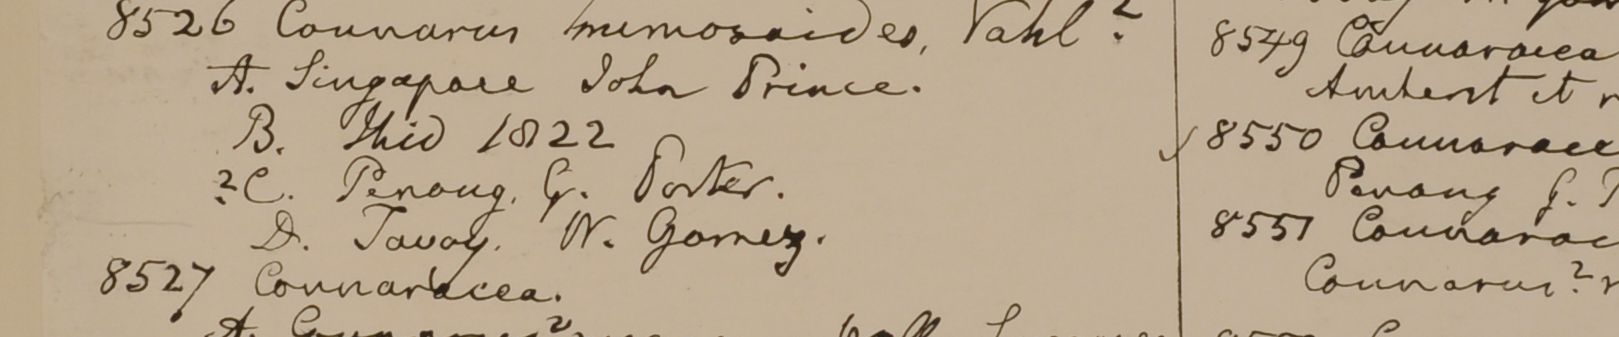 8526 Connarus mimosoides, Vahl?
A. Singapore John Prince.
B. Ibid 1822
?C. Penang. G. Porter.
D. Tavoy. W. Gomez.
8527 Connaracea.
8549 Connaracea
Amherst et
8550 Connaracea
Penang G.
8551 Connarac
Connarus?